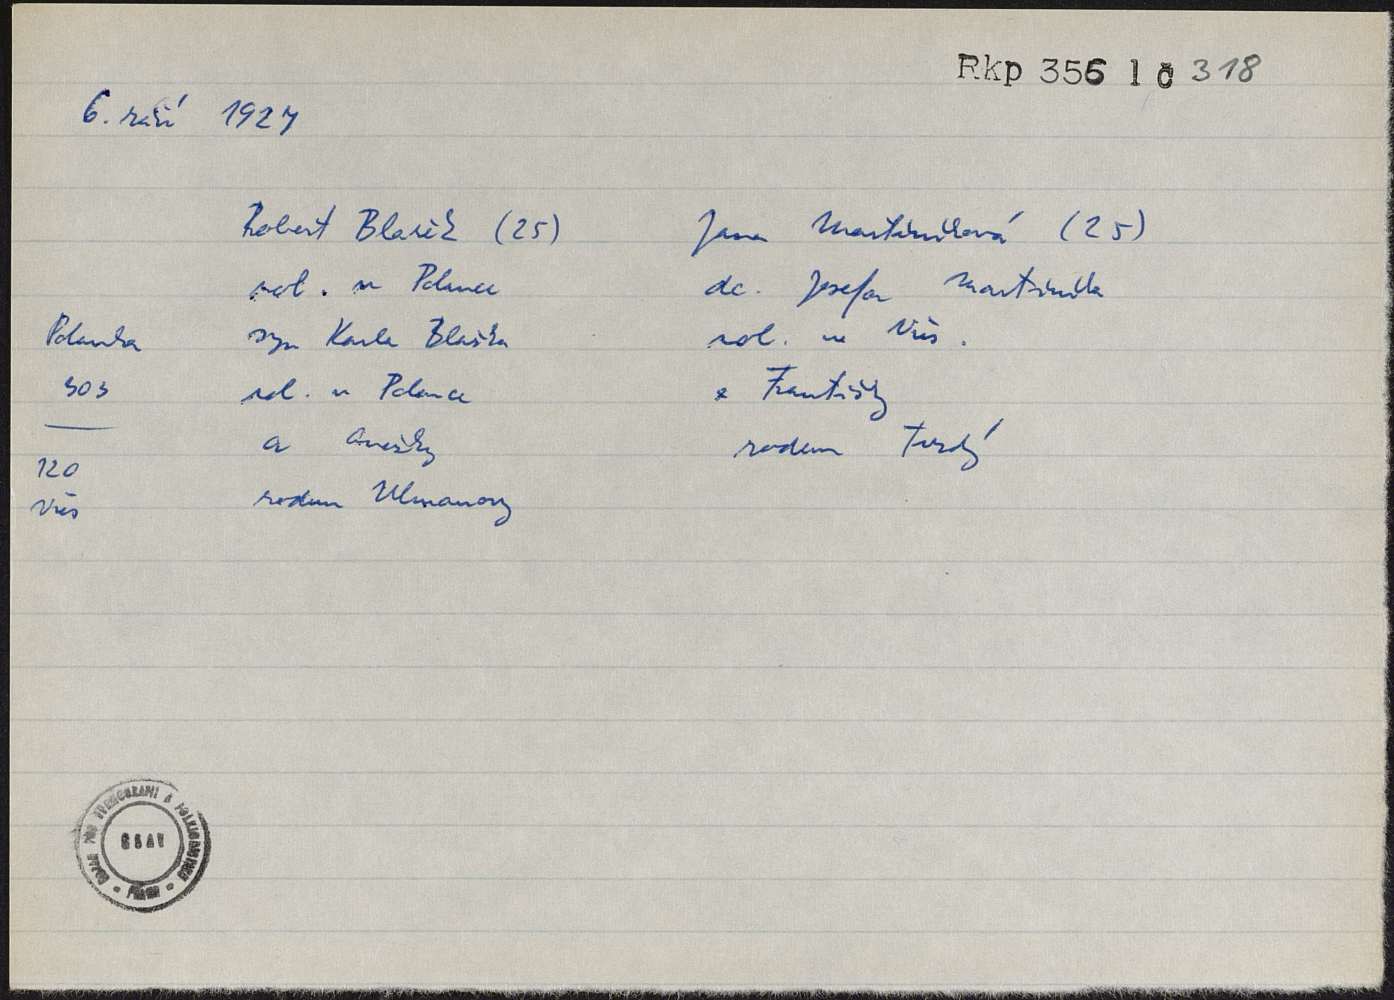 Rkp 356 l č 318
6. září 1927
Robert Blažek (25)
rol. v Polance
syn Karla Blažka
rol. v Polance
a Anežky
rodem Ulmanovy
Jana Martiníková (25)
dc. Josefa Martiníka
rol. ve Vřes.
a Františky
rodem Tvrdý
Polanka
303
120
Vřes
ÚSTAV PRO ETNOGRAFII A FOLKLORISTIKU
ČSAV
PRAHA